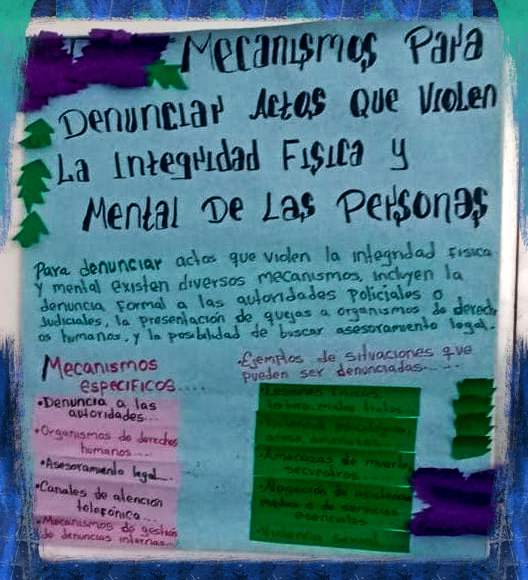 Mecanismos Para
Denunciar Actos Que Violen
La Integridad Fisica y
Mental De Las Personas
Para denunciar actos que violen la integridad fisica
y mental existen diversos mecanismos, incluyen la
denuncia formal a las autoridades policiales o
Judiciales, la presentación de quejas a organismos de derech
os humanos, y la posibilidad de buscar asesoramiento legal.
Mecanismos
especificos....
•Denuncia a las
autoridades...
•Organismos de derechos
humanos...
•Asesoramiento legal...
•Canales de atención
telefónica...
•Mecanismos de gestión
de denuncias internas...
•Ejemplos de situaciones que
pueden ser denunciadas.....
•Lesiones fisicas,
malos tratos
acoso, amenazas
•Amenazas de muerte,
secuestros
•Negación de asistencia
médica o de servicios
esenciales
•Violencia sexual